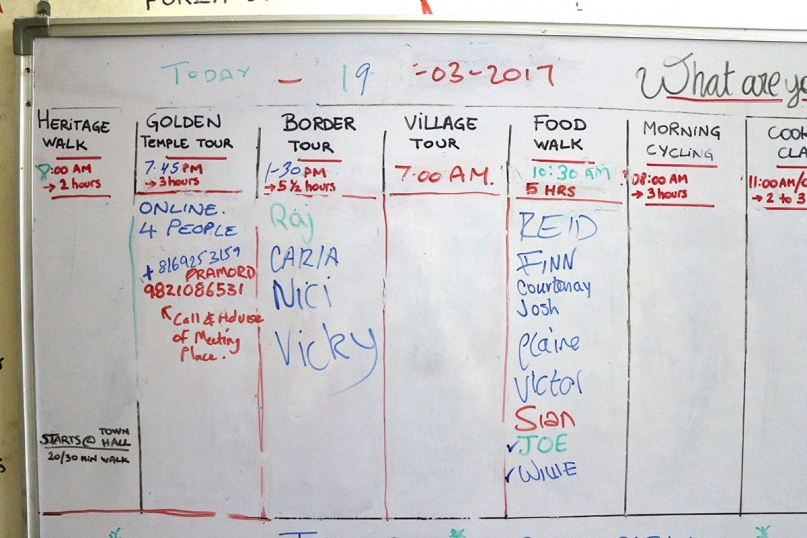 TODAY - 19 -03-2017
What are yo
HERITAGE
WALK
8:00 AM
→ 2 hours
STARTS@ TOWN
HALL
20/30 MIN WALK
GOLDEN
TEMPLE TOUR
7:45 PM
→ 3 hours
ONLINE.
4 PEOPLE
+ 8169253159
PRAMORD
9821086531
Call & Advise
of Meeting
Place.
BORDER
TOUR
1-30 PM
→ 5 ½ hours
Raj
CARIA
Nici
Vicky
VILLAGE
TOUR
7:00 AM.
FOOD
WALK
10:30 AM
5 HRS
REID
FINN
Courtenay
Josh
Elaine
Victor
Sian
✓JOE
✓WILLIE
MORNING
CYCLING
08:00 AM
→ 3 hours
COOK
CLA
11:00AM/
→ 2 to 3